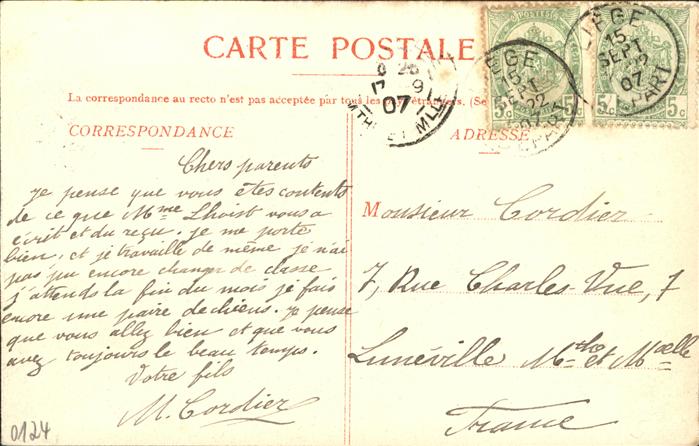 CARTE POSTALE
La correspondance au recto n'est pas acceptée par tous les pays étrangers. (Se
CORRESPONDANCE
ADRESSE
POSTES
5c 5c
5c 5c
LIEGE
15
SEPT
22
07
DEPART
LIEGE
15
SEPT
22
07
DEPART
17 9
07
MTHE ET MLLE
Chers parents
Je pense que vous êtes contents
de ce que Mme Lhoist vous a
écrit et du reçu. je me porte
bien, et je travaille de même je n'ai
pas pu encore changer de classe
j'attends la fin du mois je fais
encore une paire de chiens. Je pense
que vous allez bien et que vous
avez toujours le beau temps.
Votre fils
M. Cordier
Monsieur Cordier
7, Rue Charles Vue, 7
Lunéville Mthe et Mselle
France
0124